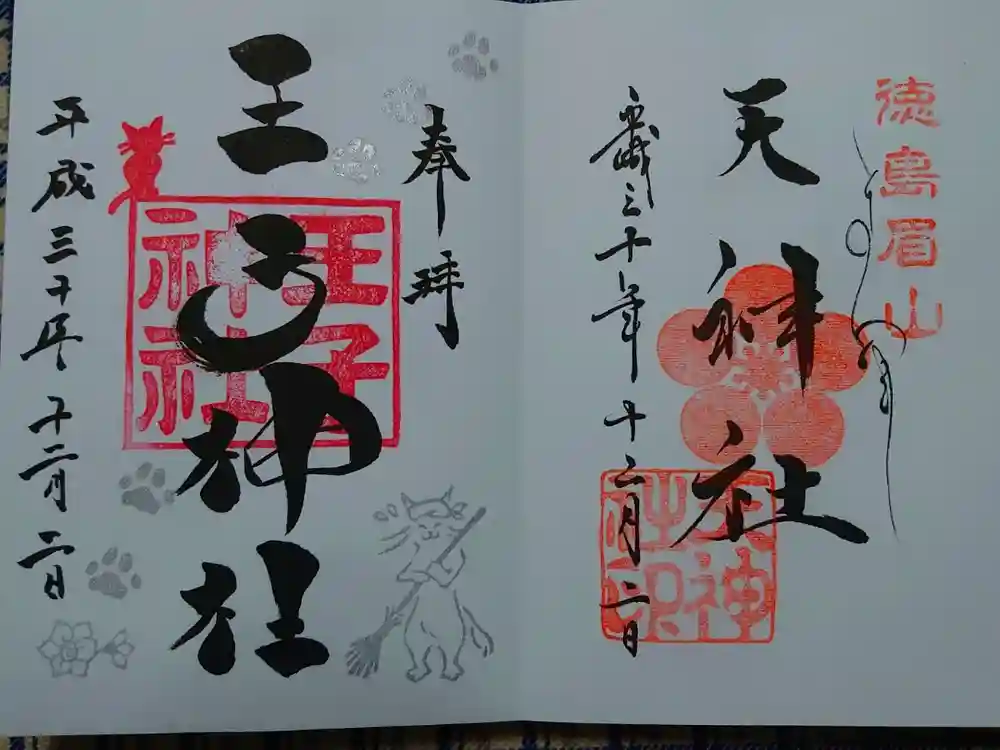 徳島眉山
天神社
平成三十年十二月二日
奉拝
王子神社
王子
神社
平成三十年十二月二日